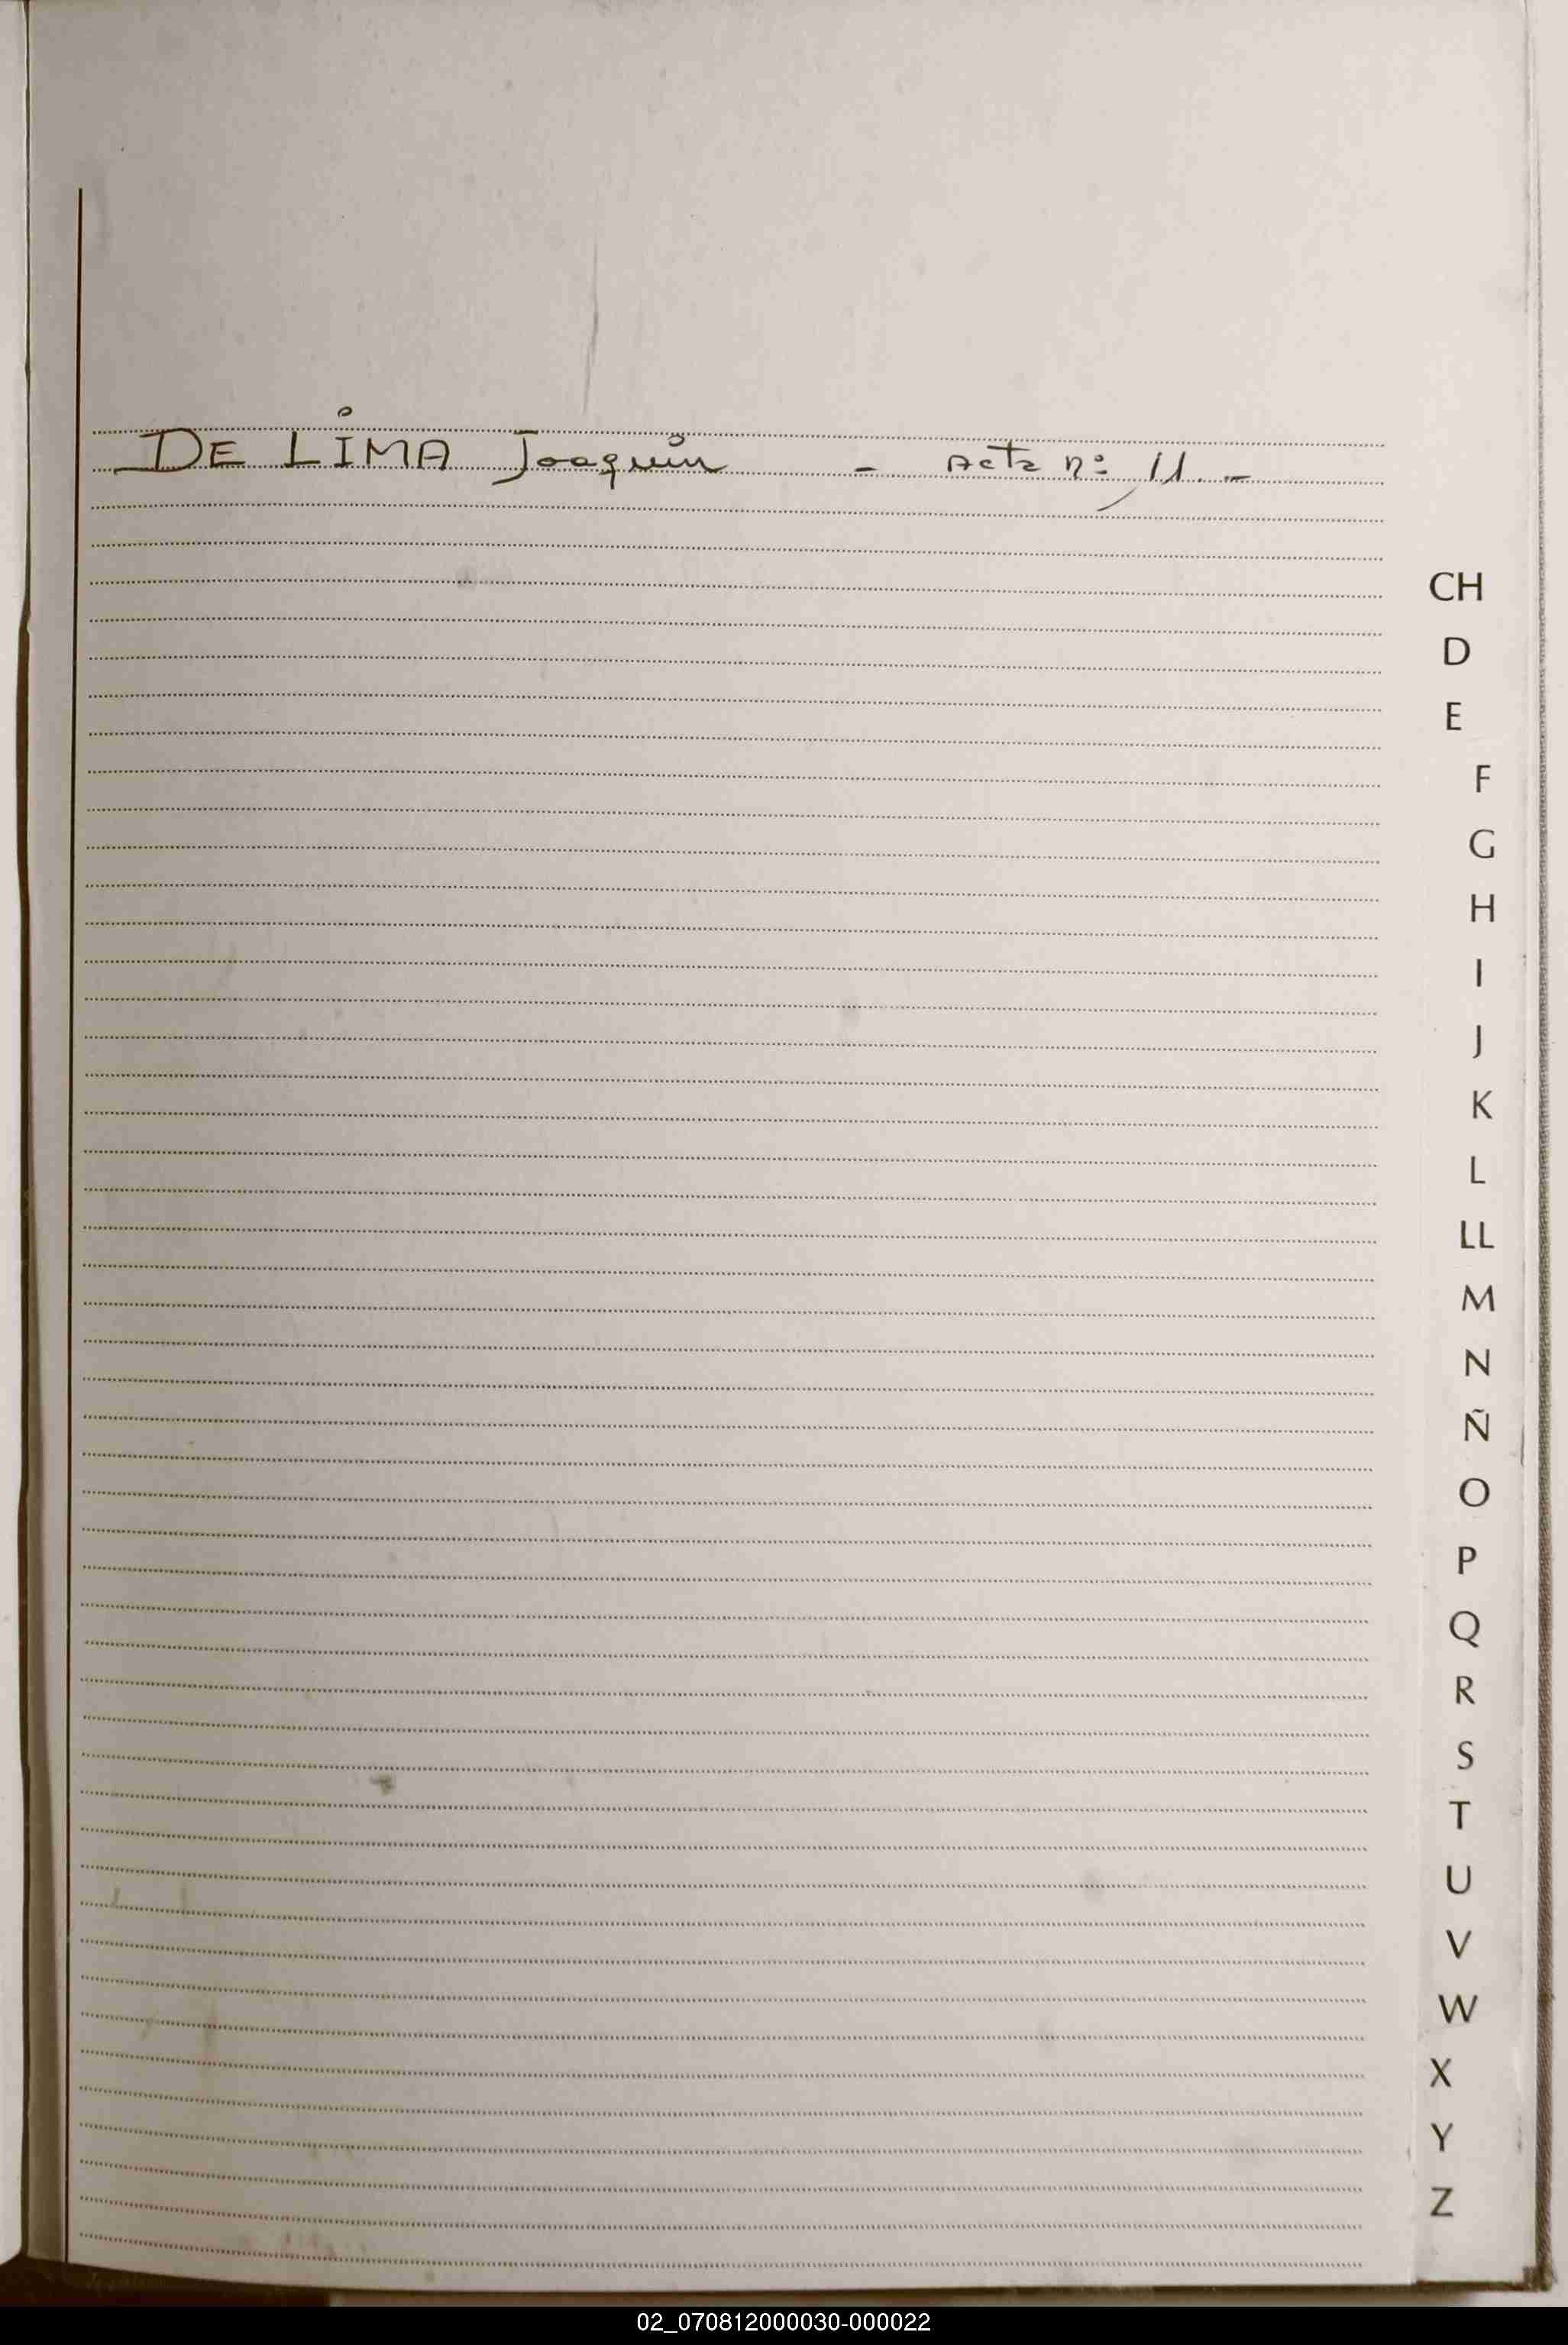 DE LIMA Joaquín - Acta nº 11.-
CH
D
E
F
G
H
I
J
K
L
LL
M
N
Ñ
O
P
Q
R
S
T
U
V
W
X
Y
Z
02_070812000030-000022